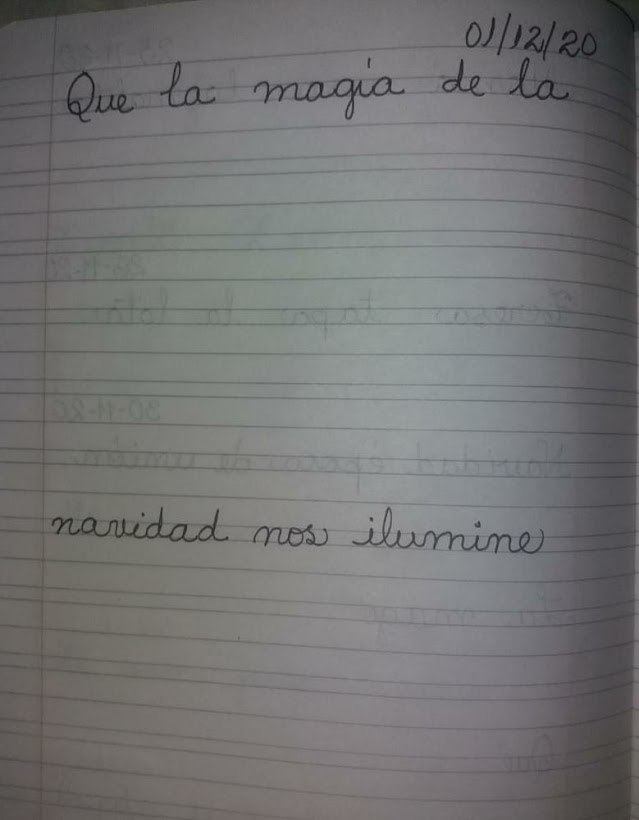 01/12/20
Que la magia de la
navidad nos ilumine